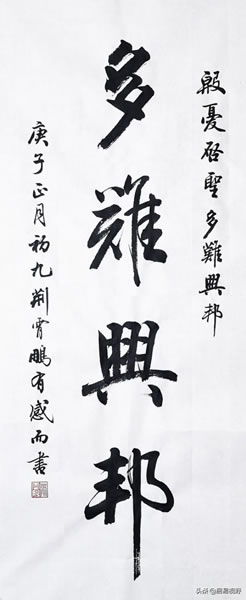 殷憂啓聖多難興邦
多難興邦
庚子正月初九荆霄鵬有感而書
头条@易易视野